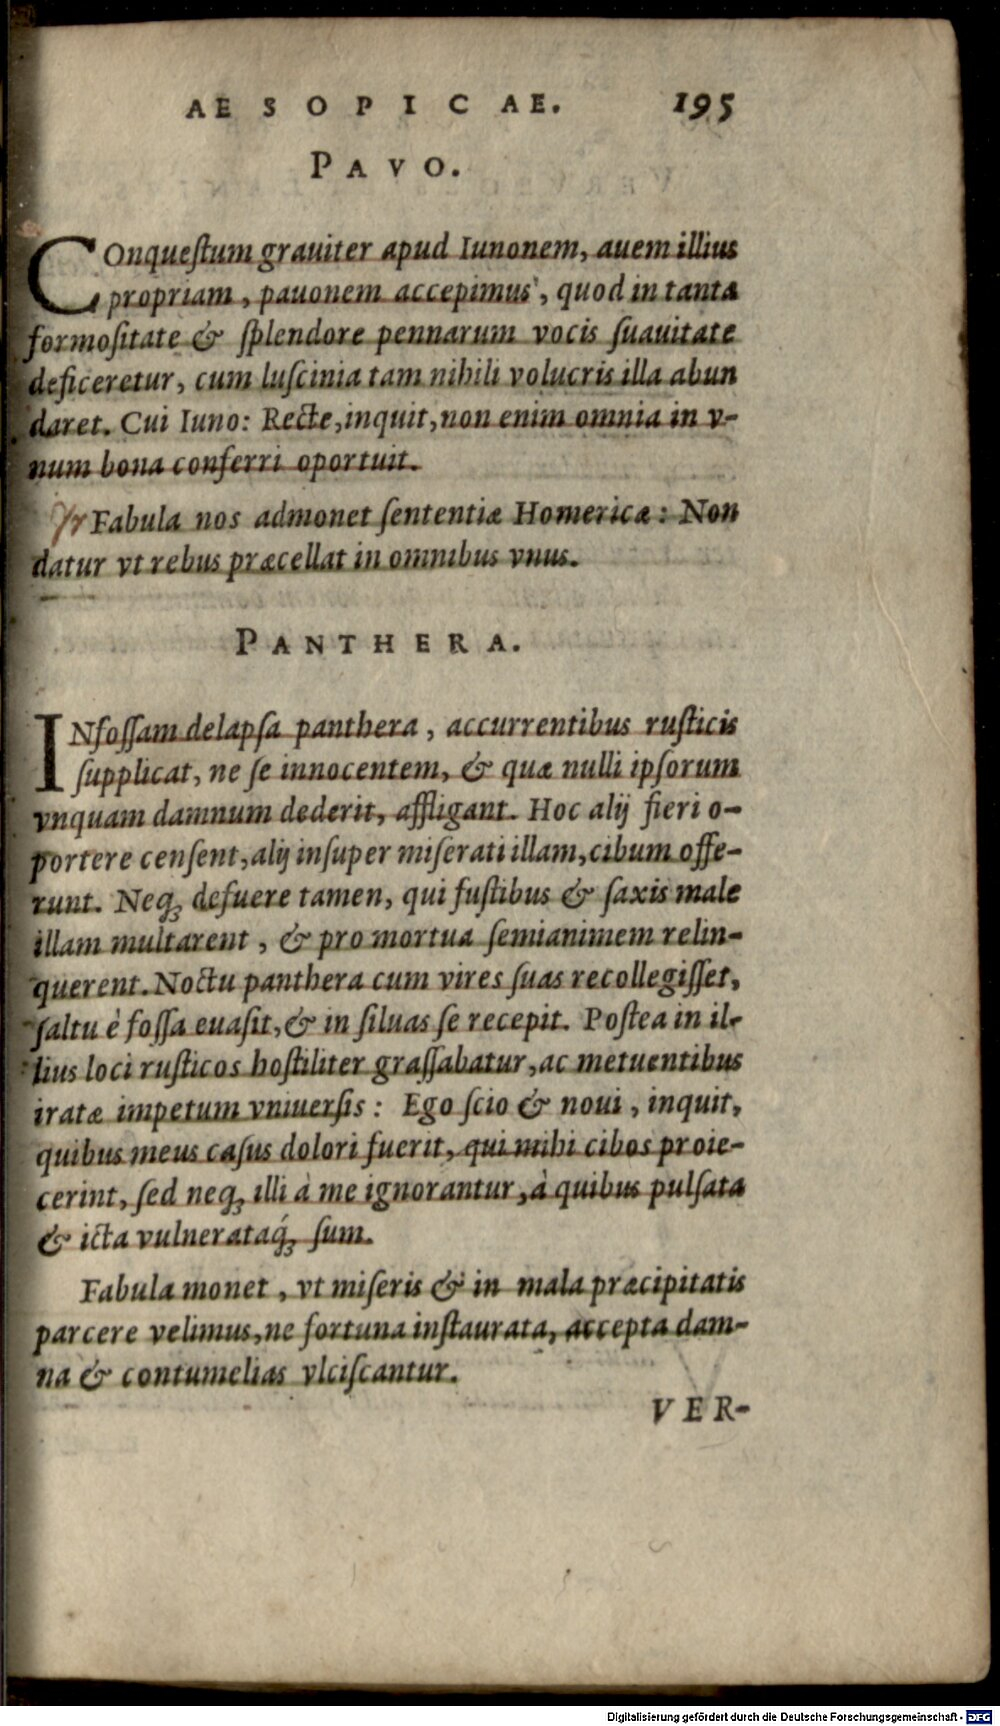 AESOPICAE. 195
PAVO.
COnqueſtum grauiter apud Iunonem, auem illius
propriam, pauonem accepimus, quod in tanta
formoſitate & ſplendore pennarum vocis ſuauitate
deficeretur, cum luſcinia tam nihili volucris illa abun
daret. Cui Iuno: Recte, inquit, non enim omnia in v-
num bona conferri oportuit.
Fabula nos admonet ſententiæ Homericæ: Non
datur vt rebus præcellat in omnibus vnus.
PANTHERA.
IN foſſam delapſa panthera, accurrentibus ruſticis
ſupplicat, ne ſe innocentem, & quæ nulli ipſorum
vnquam damnum dederit, affligant. Hoc alij fieri o-
portere cenſent, alij inſuper miſerati illam, cibum offe-
runt. Neqꝫ defuere tamen, qui fuſtibus & ſaxis male
illam multarent, & pro mortua ſemianimem relin-
querent. Noctu panthera cum vires ſuas recollegiſſet,
ſaltu è foſſa euaſit, & in ſiluas ſe recepit. Poſtea in il-
lius loci ruſticos hoſtiliter graſſabatur, ac metuentibus
iratæ impetum vniuerſis: Ego ſcio & noui, inquit,
quibus meus caſus dolori fuerit, qui mihi cibos proie-
cerint, ſed neqꝫ illi à me ignorantur, à quibus pulſata
& icta vulnerataq́ꝫ ſum.
Fabula monet, vt miſeris & in mala præcipitatis
parcere velimus, ne fortuna inſtaurata, accepta dam-
na & contumelias vlciſcantur.
VER-
Digitalisierung gefördert durch die Deutsche Forschungsgemeinschaft - DFG